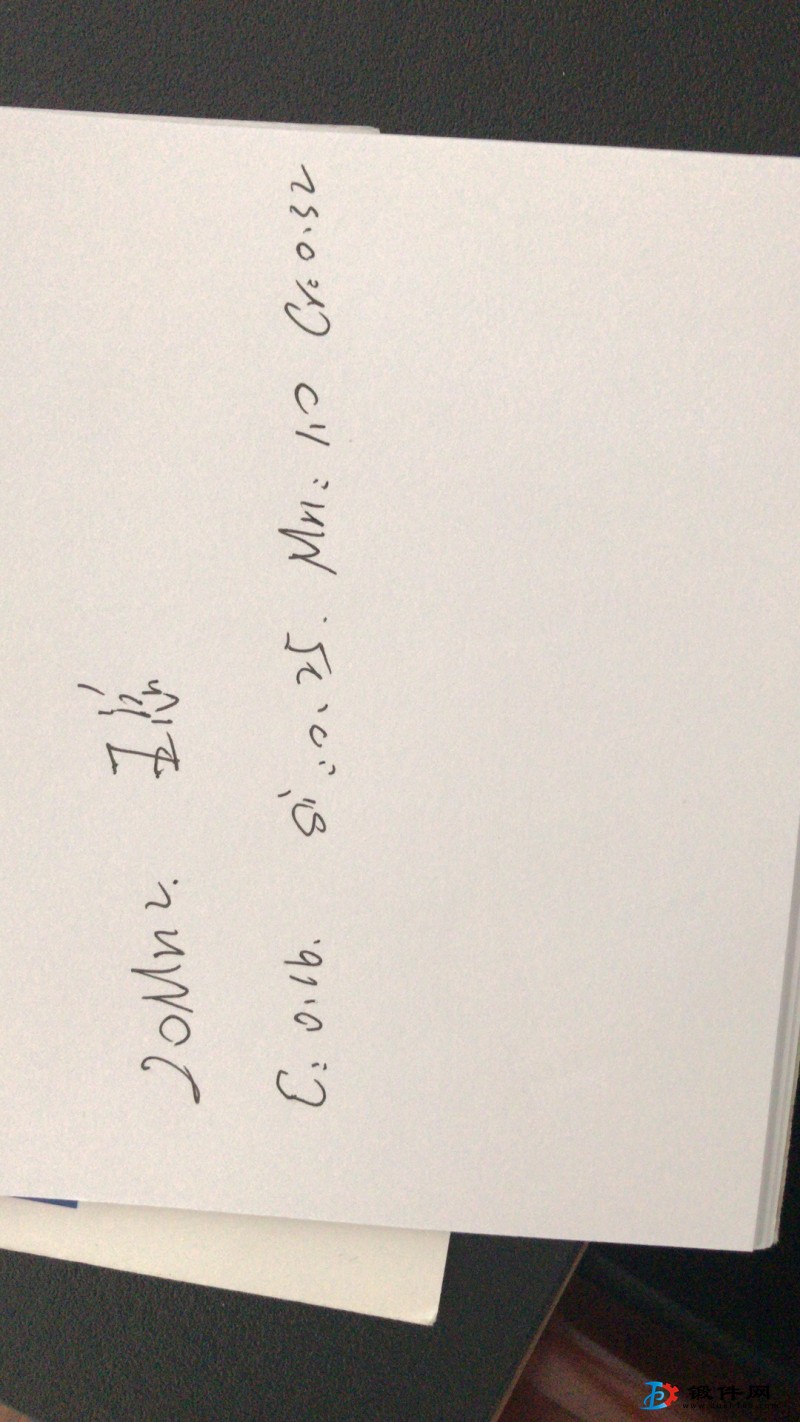 20Mn2. 正火
C: 0.16. Si: 0.25. Mn: 1.10 Cr: 0.32
锻件网